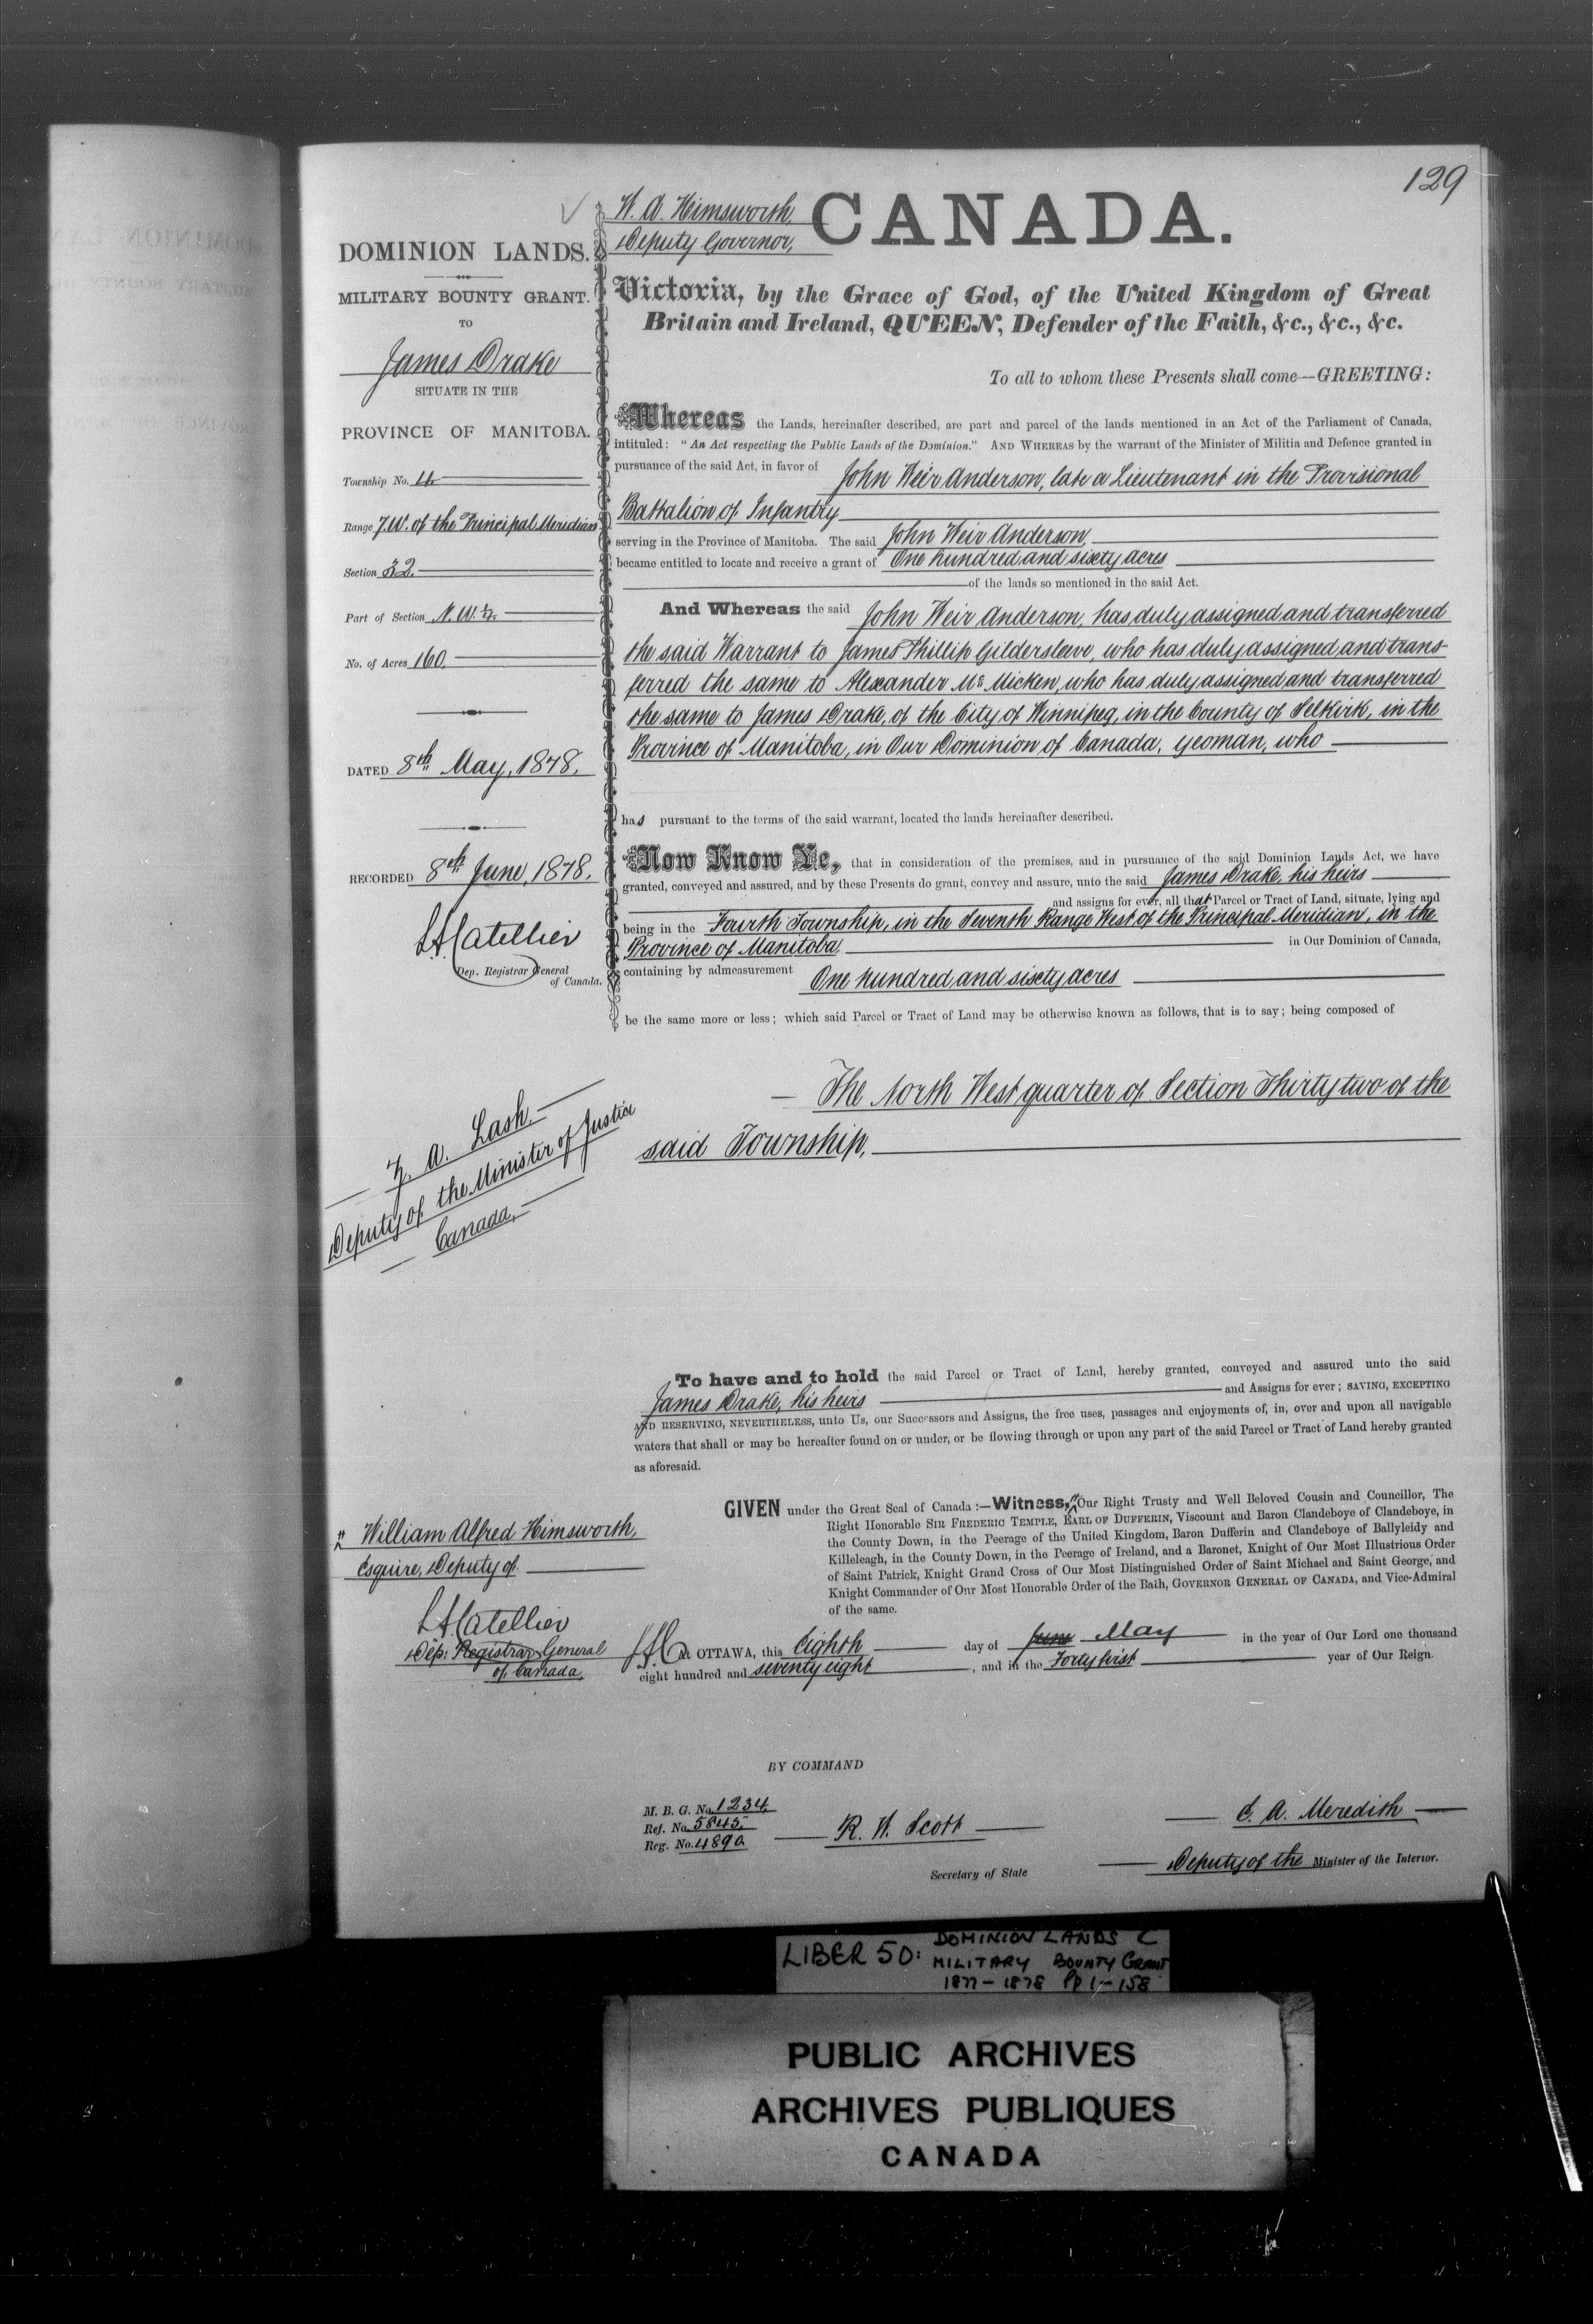 129
W. A. Himsworth,
Deputy Governor,
CANADA.
DOMINION LANDS.
MILITARY BOUNTY GRANT.
TO
James Drake
SITUATE IN THE
PROVINCE OF MANITOBA.
Township No. 4
Range 7.W. of the Principal Meridian
Section 32.
Part of Section N.W. ¼
No. of Acres 160.
DATED 8th May, 1878.
RECORDED 8th June, 1878.
L.A. Catellier
Dep. Registrar General
of Canada.
Victoria, by the Grace of God, of the United Kingdom of Great
Britain and Ireland, QUEEN, Defender of the Faith, &c., &c., &c.
To all to whom these Presents shall come—GREETING:
Whereas the Lands, hereinafter described, are part and parcel of the lands mentioned in an Act of the Parliament of Canada,
intituled: "An Act respecting the Public Lands of the Dominion." AND WHEREAS by the warrant of the Minister of Militia and Defence granted in
pursuance of the said Act, in favor of John Weir Anderson, late a Lieutenant in the Provisional
Battalion of Infantry
serving in the Province of Manitoba. The said John Weir Anderson,
became entitled to locate and receive a grant of One hundred and sixty acres
of the lands so mentioned in the said Act.
And Whereas the said John Weir Anderson, has duly assigned and transferred
the said Warrant to James Phillip Gildersleeve, who has duly assigned and trans-
ferred the same to Alexander Mc Micken, who has duly assigned and transferred
the same to James Drake, of the City of Winnipeg, in the County of Selkirk, in the
Province of Manitoba, in Our Dominion of Canada, yeoman, who
has pursuant to the terms of the said warrant, located the lands hereinafter described.
Now Know Ye, that in consideration of the premises, and in pursuance of the said Dominion Lands Act, we have
granted, conveyed and assured, and by these Presents do grant, convey and assure, unto the said James Drake, his heirs
and assigns for ever, all that Parcel or Tract of Land, situate, lying and
being in the Fourth Township, in the Seventh Range West of the Principal Meridian, in the
Province of Manitoba. in Our Dominion of Canada,
containing by admeasurement One hundred and sixty acres
be the same more or less; which said Parcel or Tract of Land may be otherwise known as follows, that is to say; being composed of
The North West quarter of Section Thirty two of the
said Township,
Z. A. Lash.
Deputy of the Minister of Justice
Canada,
To have and to hold the said Parcel or Tract of Land, hereby granted, conveyed and assured unto the said
James Drake, his heirs and Assigns for ever; SAVING, EXCEPTING
AND RESERVING, NEVERTHELESS, unto Us, our Successors and Assigns, the free uses, passages and enjoyments of, in, over and upon all navigable
waters that shall or may be hereafter found on or under, or be flowing through or upon any part of the said Parcel or Tract of Land hereby granted
as aforesaid.
GIVEN under the Great Seal of Canada:—Witness, " Our Right Trusty and Well Beloved Cousin and Councillor, The
Right Honorable SIR FREDERIC TEMPLE, EARL OF DUFFERIN, Viscount and Baron Clandeboye of Clandeboye, in
the County Down, in the Peerage of the United Kingdom, Baron Dufferin and Clandeboye of Ballyleidy and
Killeleagh, in the County Down, in the Peerage of Ireland, and a Baronet, Knight of Our Most Illustrious Order
of Saint Patrick, Knight Grand Cross of Our Most Distinguished Order of Saint Michael and Saint George, and
Knight Commander of Our Most Honorable Order of the Bath, GOVERNOR GENERAL OF CANADA, and Vice-Admiral
of the same.
" William Alfred Himsworth,
Esquire, Deputy of
L.A. Catellier
Dep: Registrar General
of Canada,
At OTTAWA, this Eighth day of June May in the year of Our Lord one thousand
eight hundred and seventy eight, and in the Forty first year of Our Reign.
BY COMMAND
M. B. G. No. 1234,
Ref. No. 5845,
Reg. No. 489a
R. W. Scott
Secretary of State
E. A. Meredith
Deputy of the Minister of the Interior.
LIBER 50: DOMINION LANDS C
MILITARY BOUNTY GRANT
1877-1878 Pp 1-158
PUBLIC ARCHIVES
ARCHIVES PUBLIQUES
CANADA